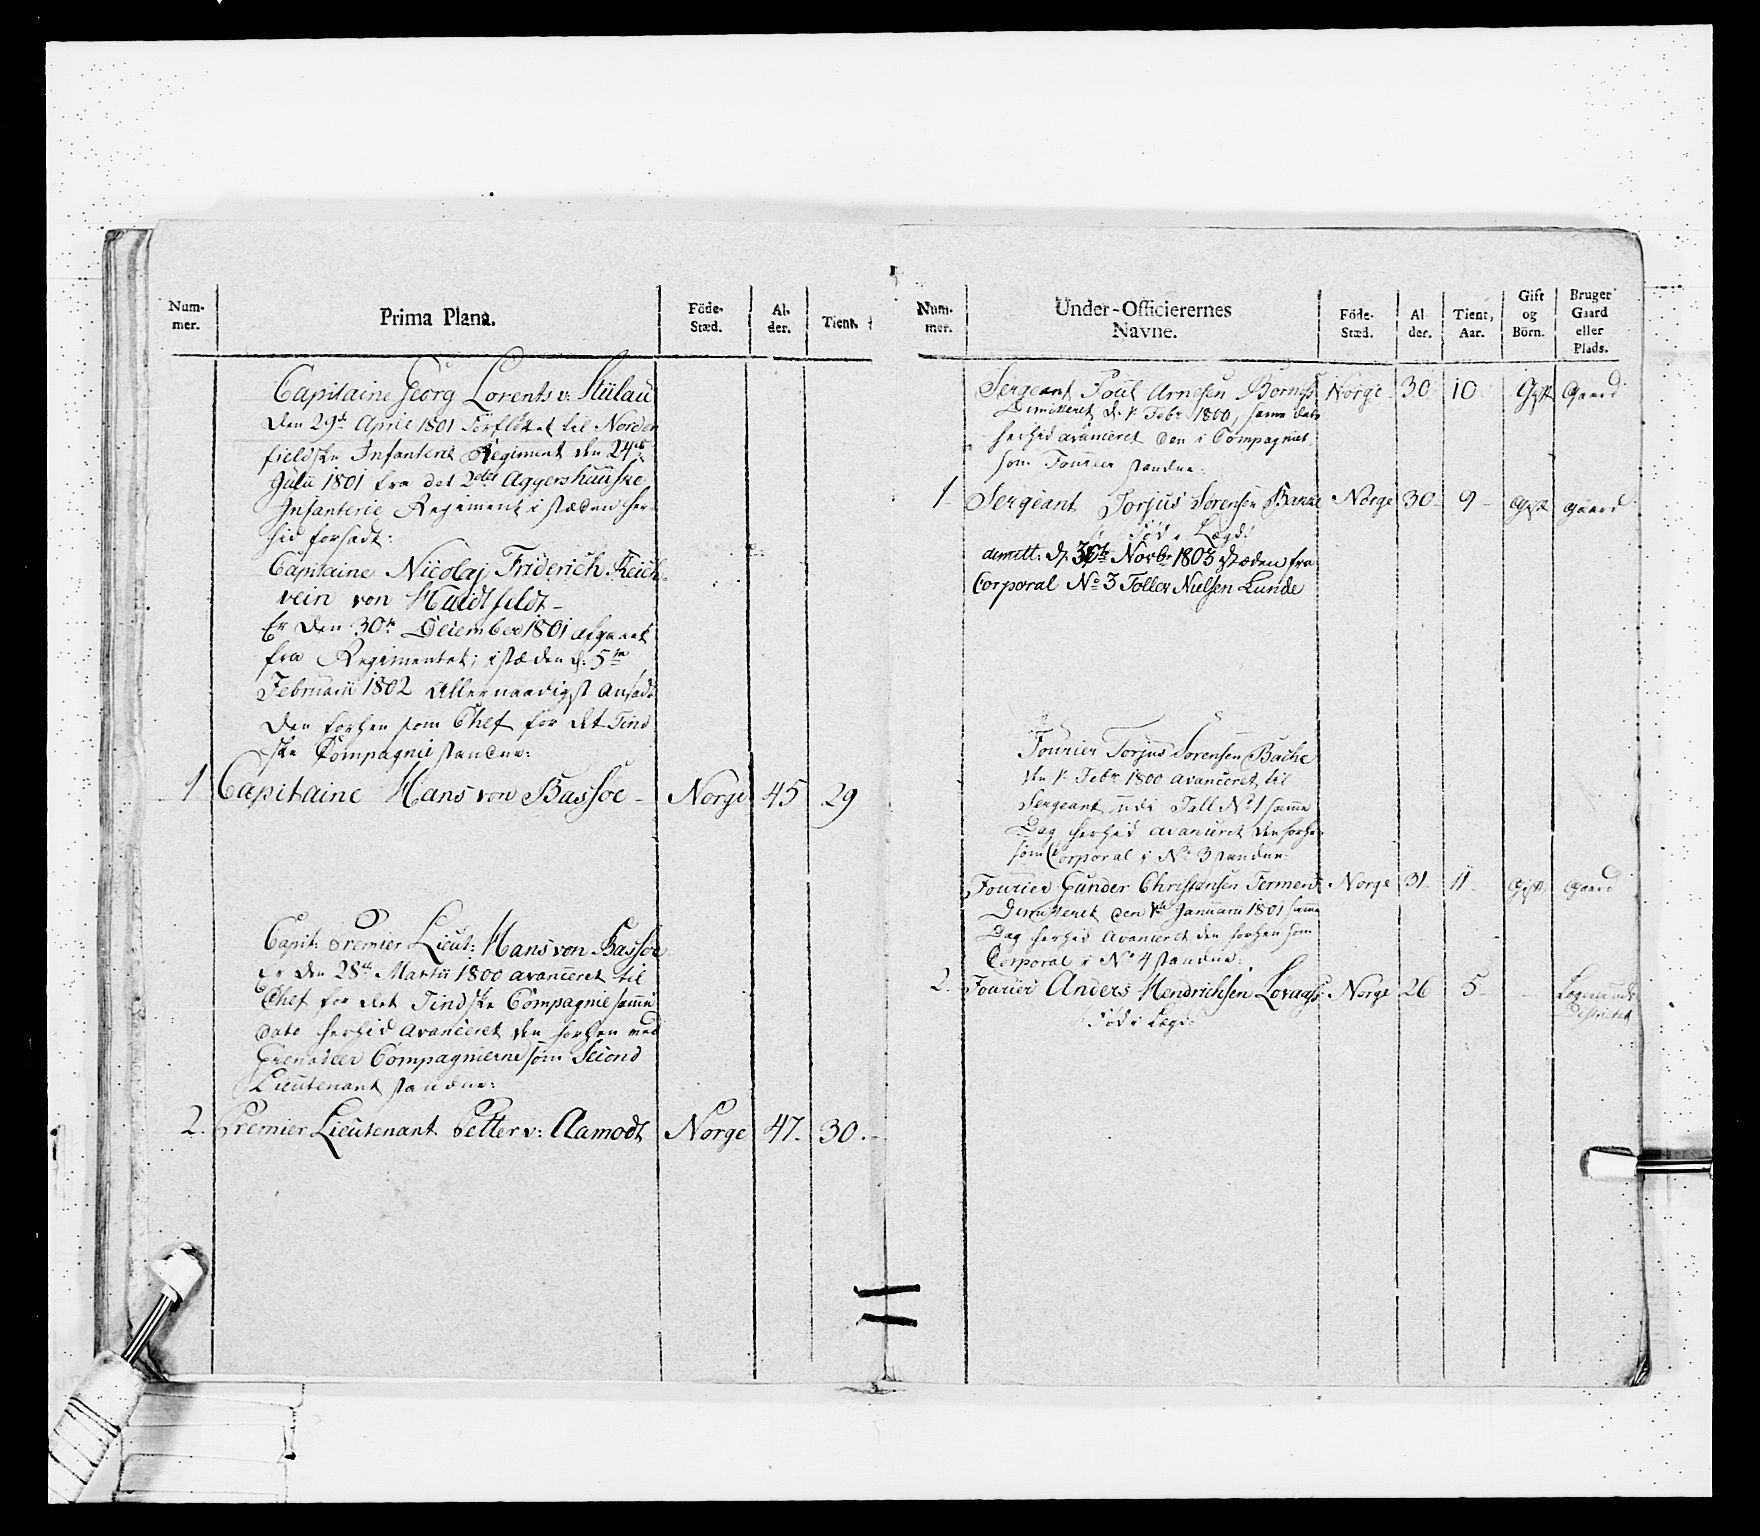 Num-
mer.
Prima Plana.
Föde-
Stæd.
Al-
der.
Tient.
Capitaine Georg Lorents v: Stülau
den 29de April 1801 forflöttet til Norden
fieldske Infanterie Regiment den 24de
Julii 1801 fra det 2det Aggershuuske
Infanterie Regiment i stæden her-
hid forsadt:
Capitaine Nicolaj Friderich Reich-
vein von Huidtfeldt-
Er den 30te December 1801 afgaaet
fra Regimentet; i stæden d: 5te
Februarii 1802 allernaadigst ansadt
den forhen som Chef for det Tind
ske Compagnie standne:
1 Capitaine Hans von Bassöe - Norge 45 29
Capit: Premier Lieut: Hans von Bassöe
er den 28de Martii 1800 avanceret til
Chef for det Tindske Compagnie samme
dato herhid avanceret den forhen ved
Grenadeer Compagnierne som Second
Lieutenant standne:
2. Premier Lieutenant Petter v: Aamodt Norge 47. 30.
Num-
mer.
Under-Officierernes
Navne.
Föde-
Stæd.
Al-
der.
Tient,
Aar.
Gift
og
Börn.
Bruger
Gaard
eller
Plads.
Sergeant Poul Arnesen Norge 30 10 Gift Gaard
Dimitteret d. 1 Febr 1800, samme dato
herhid avanceret den i Compagniet
som Fourier standne:
1 Sergeant Torjus Sörensen Norge 30 9 Gift Gaard
Föd i Lægd:
dimitt: d. Novbr 1803 i stæden fra
Corporal No 3 Tollev Nielsen Lunde
Fourier Torjus Sorensen Bache
den 1 Febr 1800 avanceret til
Sergeant udi Tall No 1 samme
Dag herhid avanceret den forhen
som Corporal i No 3 standne:
Fourier Gunder Christensen Norge 31 11 Gift Gaard
Dimitteret den 1te Januarii 1801 samme
Dag herhid avanceret den forhen som
Corporal i No 4 standne:
2. Fourier Anders Hendrichsen Lovaas Norge 26 5 - - udi
Föd i Lægd: Districtet